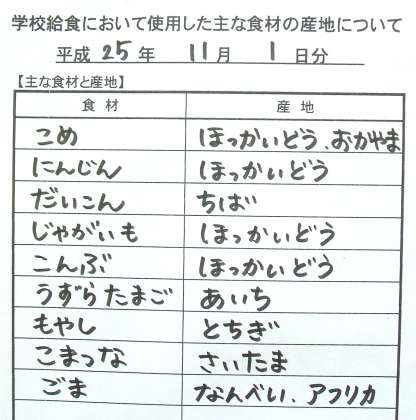 学校給食において使用した主な食材の産地について
平成 25 年 11 月 1 日分
【主な食材と産地】
食材 産地
こめ ほっかいどう、おかやま
にんじん ほっかいどう
だいこん ちば
じゃがいも ほっかいどう
こんぶ ほっかいどう
うずらたまご あいち
もやし とちぎ
こまつな さいたま
ごま なんべい、アフリカ